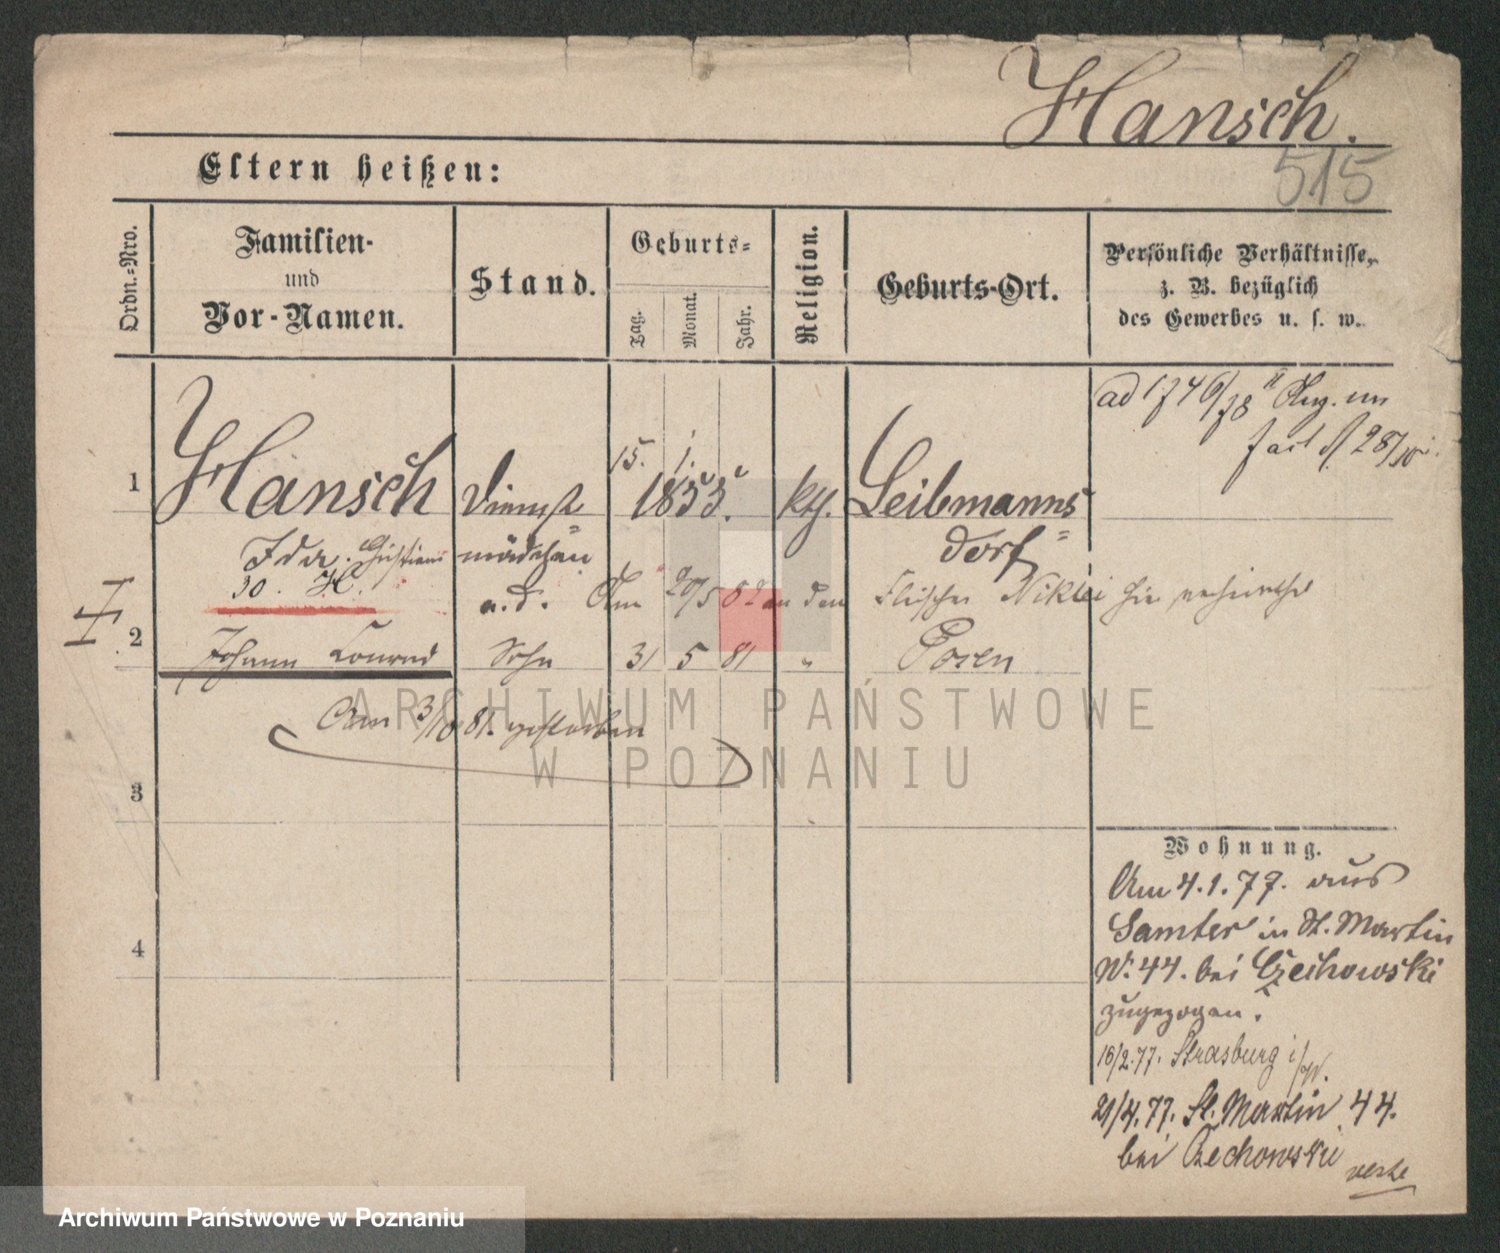 Hansch.
515
Eltern heißen:
Ordn.-Nro.
Familien-
und
Vor-Namen.
Stand.
Geburts-
Tag.
Monat.
Jahr.
Religion.
Geburts-Ort.
Persönliche Verhältnisse,
z. B. bezüglich
des Gewerbes u. s. w.
1
Hansch
Dienst=
15. 1.
1855.
kth.
Leibmanns
dorf=
Ida
mädchen
30. H.
a. d. Am 20/5 82 an den Fleischer Niklei hie
2
Johann Konrad
Sohn
31 5 81 "
Posen
Am 3/10 81. gestorben
3
4
Wohnung.
Am 4.1.77. aus
Samter in St. Martin
N. 44. bei Czechowski
zugezogen.
16/2.77. Strasburg i/W.
21/4.77. St. Martin 44.
bei Czechowski
verte
ARCHIWUM PAŃSTWOWE
W POZNANIU
Archiwum Państwowe w Poznaniu